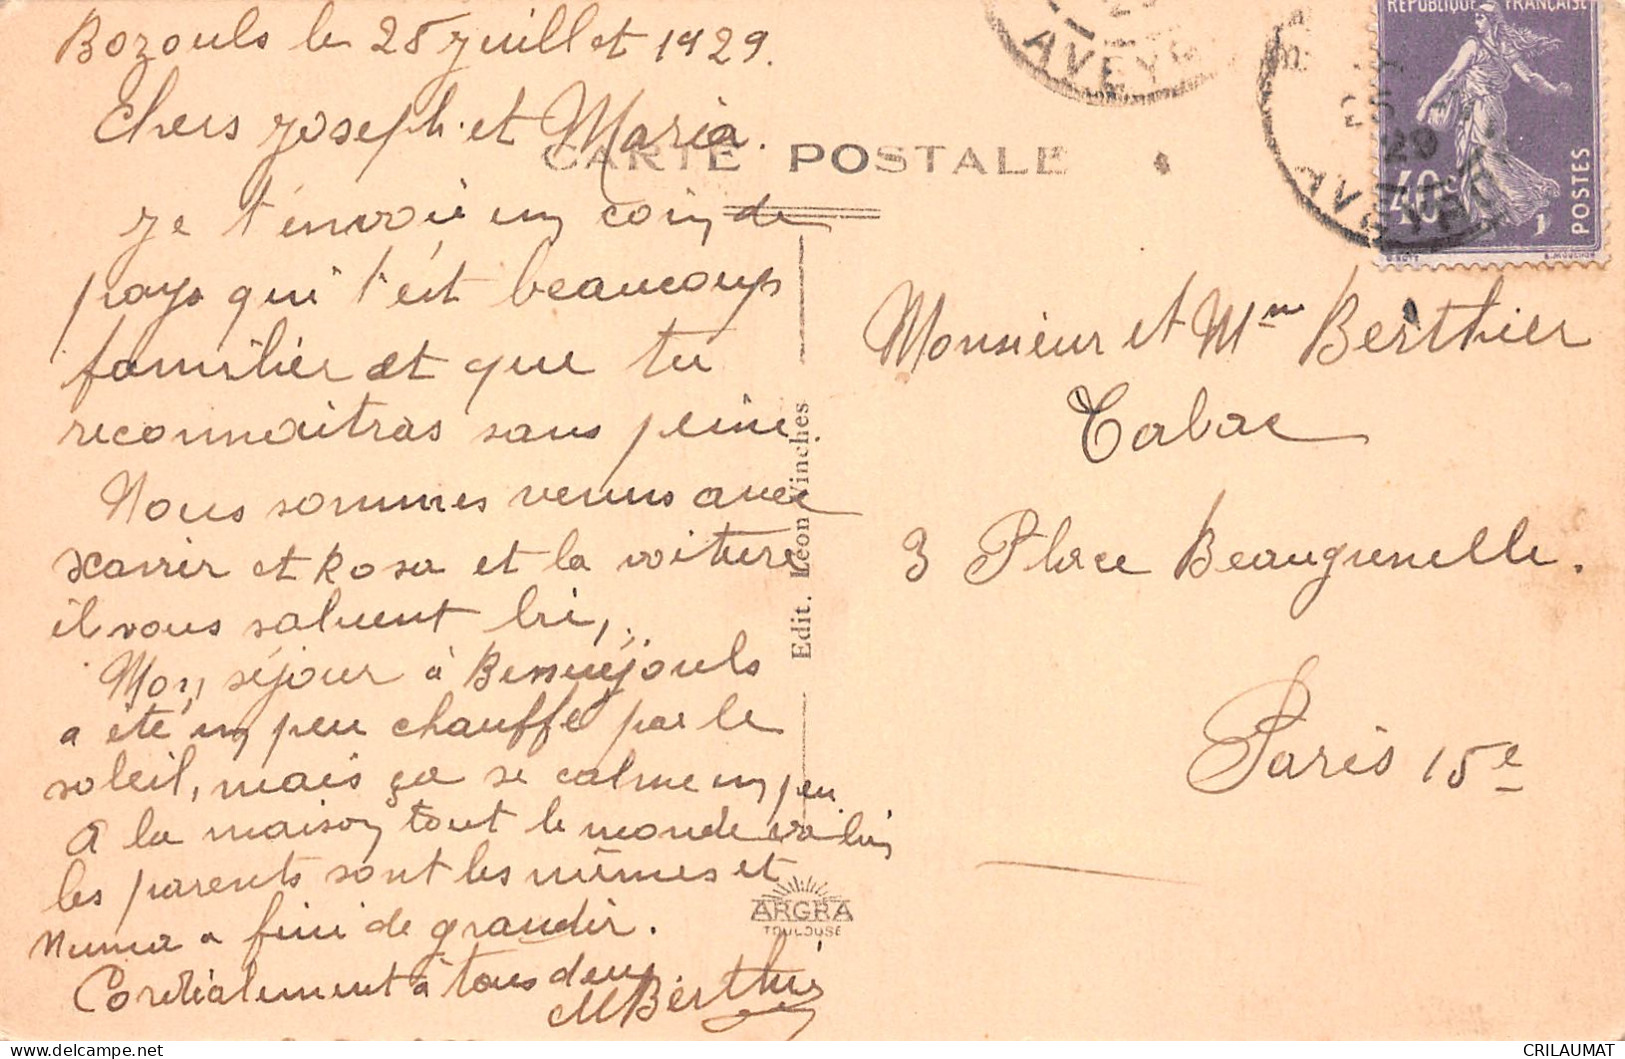 Bozouls le 28 Juillet 1929.
Chers Joseph et Maria.
CARTE POSTALE
Je t'envoie un coin de
pays qui t'est beaucoup
familier et que tu
reconnaitras sans peine.
Nous sommes venus avec
Xavier et Rosa et la voiture
il vous saluent bri,
Mon séjour à Bennéjouls
a été un peu chauffé par le
soleil, mais ça se calme un peu.
A la maison tout le monde va bin
les parents sont les mêmes et
Numa a fini de grandir.
Cordialement à tous deux
M Berthier
Edit. Léon Vinches
ARGRA
TOULOUSE
AVEY
RÉPUBLIQUE FRANÇAISE
40c
POSTES
29
AVEYRON
Monsieur et Mme Berthier
Tabac
3 Place Beaugrenelle.
Paris 15e
CRILAUMAT